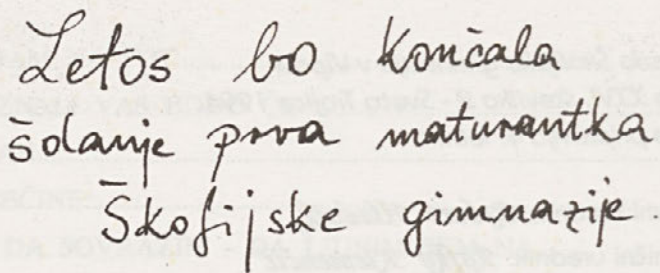 Letos bo končala
šolanje prva maturantka
Škofijske gimnazije.